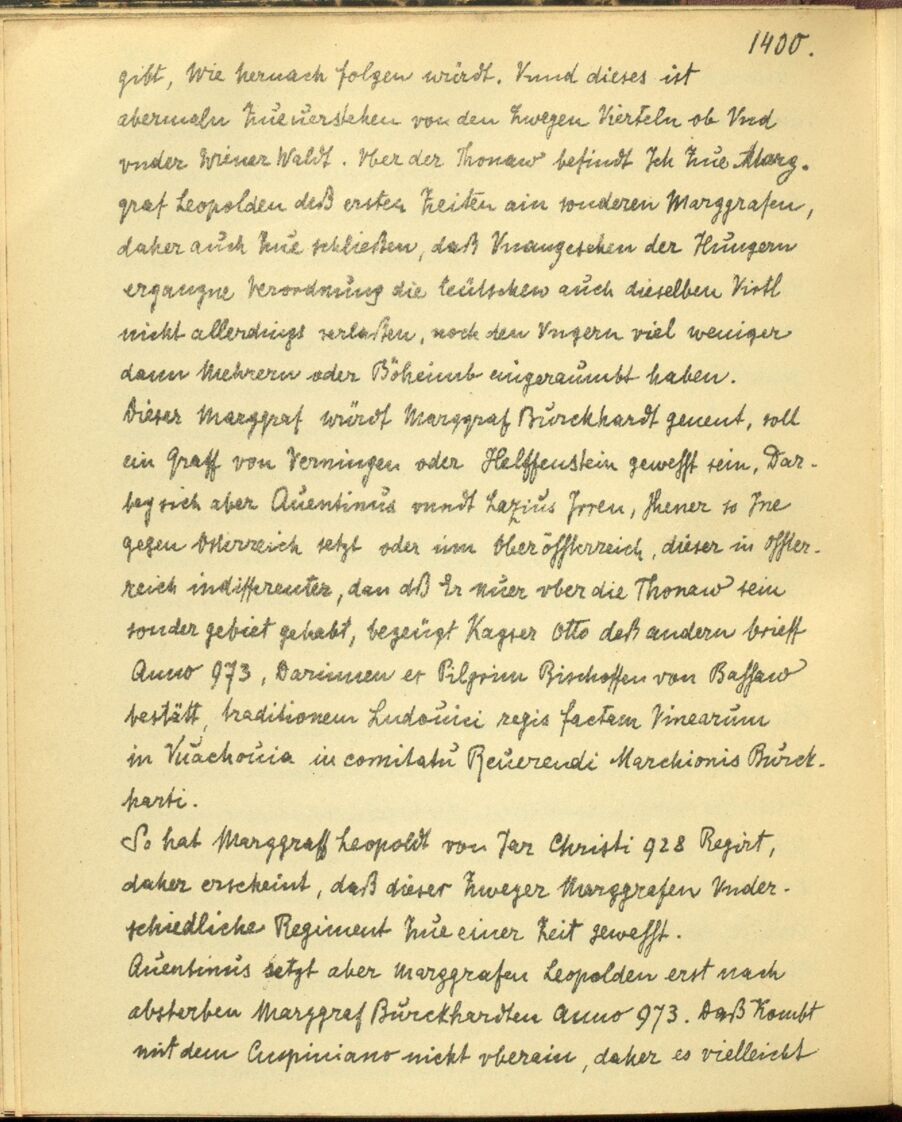 1400.
gibt, Wie hernach folgen würdt. Vnnd dieses ist
abermaln Zueuerstehen von den Zweyen Vierteln ob Vnd
vnder Wiener Waldt. Vber der Thonaw befindt Ich Zue Marg-
graf Leopolden deß ersten Zeiten ain sonderen Marggrafen,
daher auch Zue schließen, daß Vnangesehen der Hungern
ergangne Verordnung die teütschen auch dieselben Virtl
nicht allerdings verlaßen, noch den Vngern viel weniger
dann Mehrern oder Böheimb eingeraumbt haben.
Dieser Marggraf würdt Marggraf Burckhardt genent, soll
ein Graff von Verningen oder Helffenstein gewesst sein, Dar-
bey sich aber Auentinus vnndt Lazius Irren, Jhener so Ine
gegen Osterreich setzt oder im Oberössterreich, dieser in Osster-
reich indifferenter, dan dß Er nuer vber die Thonaw sein
sonder gebiet gehabt, bezeügt Kayser Otto deß andern brieff
Anno 973, Darinnen er Pilgrim Bischoffen von Bassaw
bestätt, traditionem Ludouici regis factam Vinearum
in Vuachouia in comitatu Reuerendi Marchionis Burck-
harti.
So hat Marggraff Leopoldt von Jar Christi 928 Regirt,
daher erscheint, daß dieser Zweyer Marggrafen Vnder-
schiedliche Regiment Zue einer Zeit gewesst.
Auentinus setzt aber Marggrafen Leopolden erst nach
absterben Marggraf Burckhardten Anno 973. Daß Kombt
mit dem Cuspiniano nicht vberain, daher es vielleicht